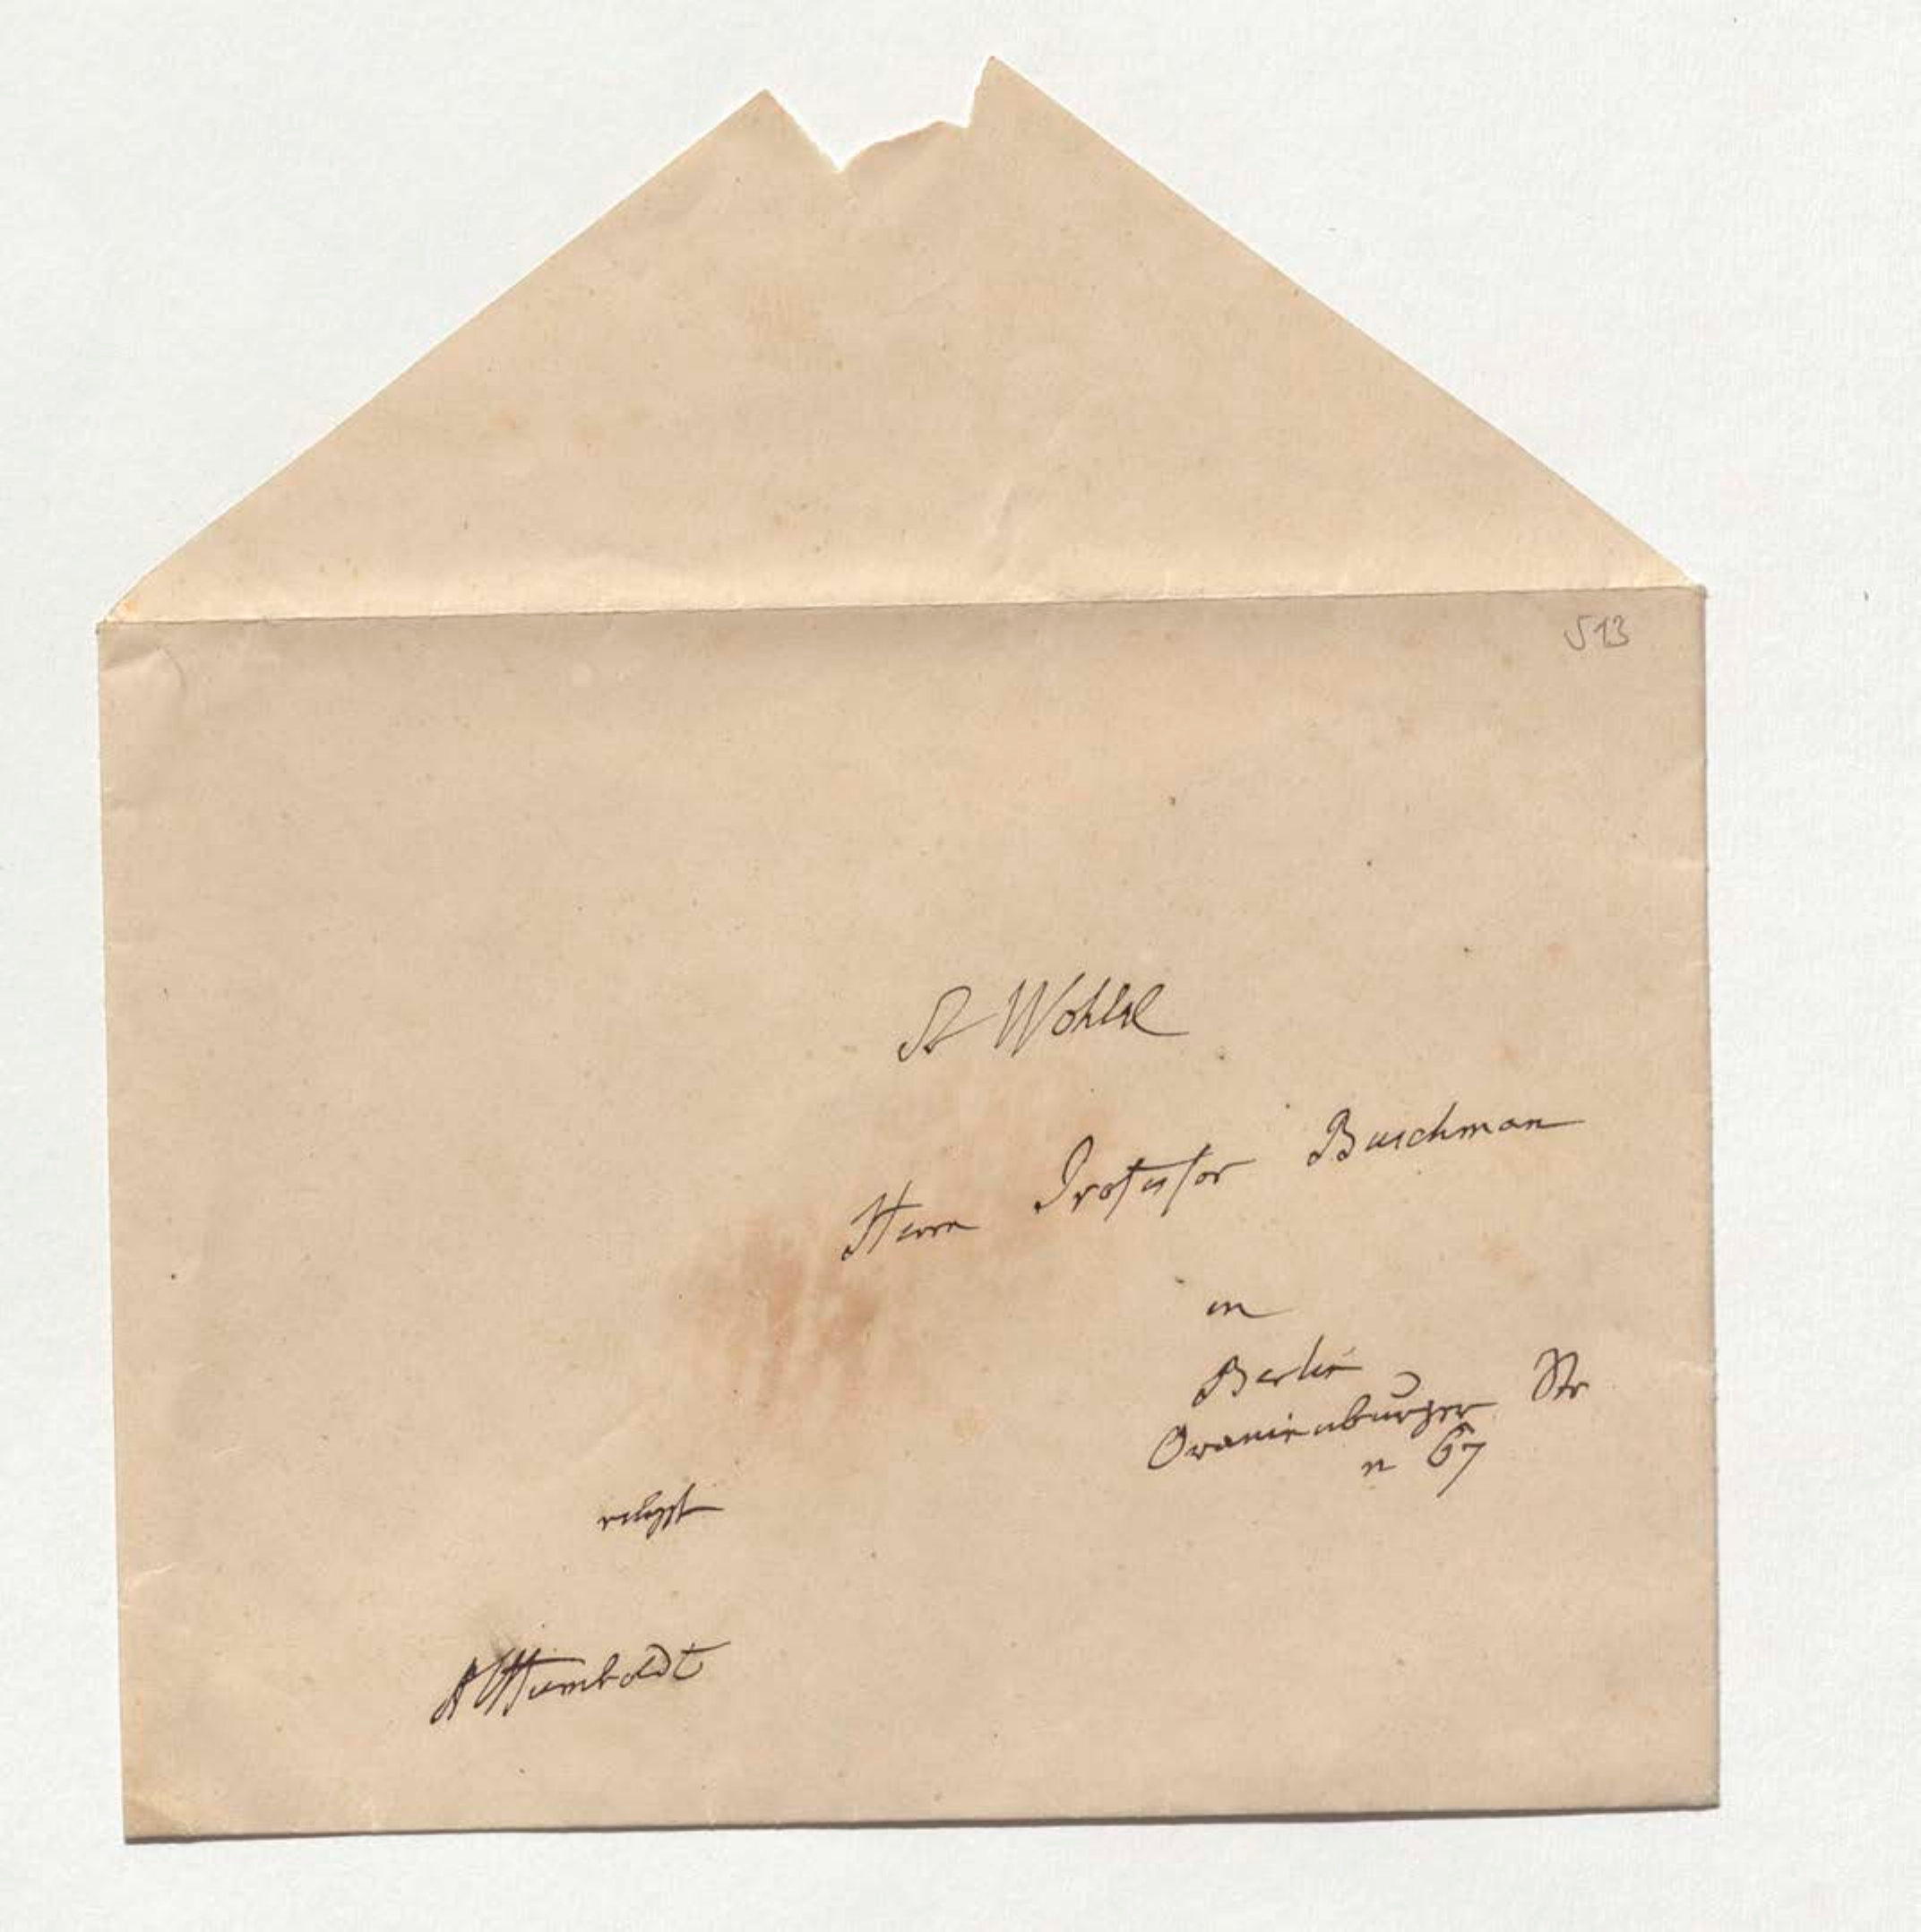 513
Sr Wohlel
Herrn Professor Buschman
in
Berlin
Oranienburger Str
n 67
AlHumboldt